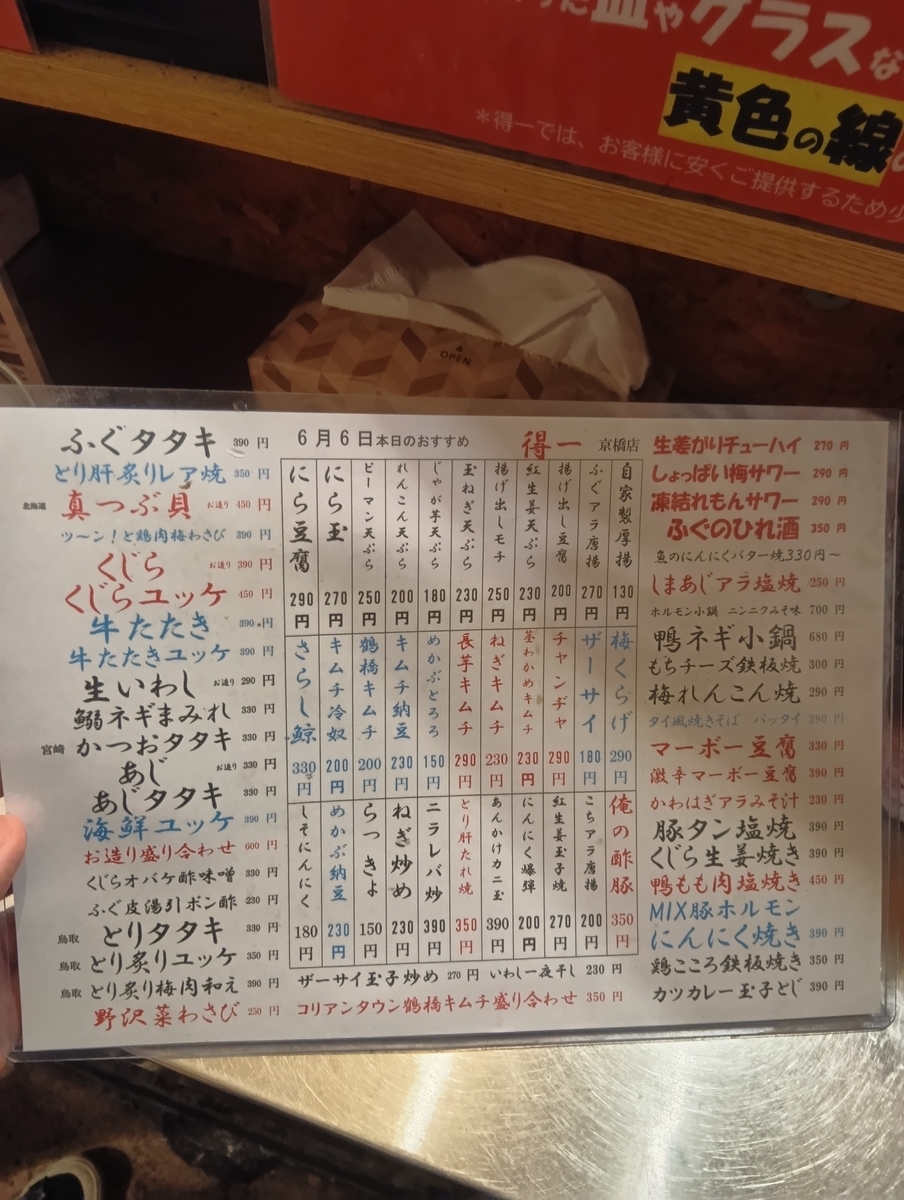 皿やグラスな
黄色の線の
*得一では、お客様に安くご提供するため少
OPEN
ふぐタタキ 390円
とり肝炙りレア焼 350円
北海道 真つぶ貝 お造り 450円
ツ〜ン!と鶏肉梅わさび 390円
くじら お造り 390円
くじらユッケ 450円
牛たたき 390円
牛たたきユッケ 390円
生いわし お造り 290円
鰯ネギまみれ 330円
宮崎 かつおタタキ 330円
あじ お造り 330円
あじタタキ 330円
海鮮ユッケ 390円
お造り盛り合わせ 600円
くじらオバケ酢味噌 330円
ふぐ皮湯引ポン酢 230円
鳥取 とりタタキ 330円
鳥取 とり炙りユッケ 350円
鳥取 とり炙り梅肉和え 390円
野沢菜わさび 250円
6月6日本日のおすすめ 得一 京橋店
自家製厚揚 130円
ふぐアラ唐揚 270円
揚げ出し豆腐 200円
紅生姜天ぷら 230円
揚げ出しモチ 250円
玉ねぎ天ぷら 230円
じゃが芋天ぷら 180円
れんこん天ぷら 200円
ピーマン天ぷら 250円
にら玉 270円
にら豆腐 290円
梅くらげ 290円
ザーサイ 180円
チャンヂャ 290円
茎わかめキムチ 230円
ねぎキムチ 230円
長芋キムチ 290円
めかぶとろろ 150円
キムチ納豆 230円
鶴橋キムチ 200円
キムチ冷奴 200円
さらし鯨 330円
俺の酢豚 350円
こちアラ唐揚 200円
紅生姜玉子焼 270円
にんにく爆弾 200円
あんかけカニ玉 390円
とり肝たれ焼 350円
ニラレバ炒 390円
ねぎ炒め 230円
らっきょ 150円
めかぶ納豆 230円
しそにんにく 180円
ザーサイ玉子炒め 270円 いわし一夜干し 230円
コリアンタウン鶴橋キムチ盛り合わせ 350円
生姜がりチューハイ 270円
しょっぱい梅サワー 290円
凍結れもんサワー 290円
ふぐのひれ酒 350円
魚のにんにくバター焼330円〜
しまあじアラ塩焼 250円
ホルモン小鍋 ニンニクみそ味 700円
鴨ネギ小鍋 680円
もちチーズ鉄板焼 300円
梅れんこん焼 290円
タイ風焼きそば パッタイ 390円
マーボー豆腐 330円
激辛マーボー豆腐 390円
かわはぎアラみそ汁 230円
豚タン塩焼 390円
くじら生姜焼き 390円
鴨もも肉塩焼き 450円
MIX豚ホルモン
にんにく焼き 390円
鶏こころ鉄板焼 350円
カツカレー玉子とじ 390円